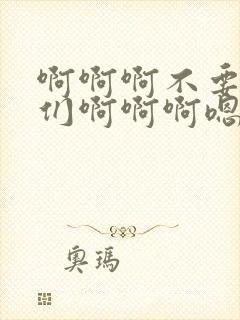 啊啊啊不要
们啊啊啊嗯
奥玛